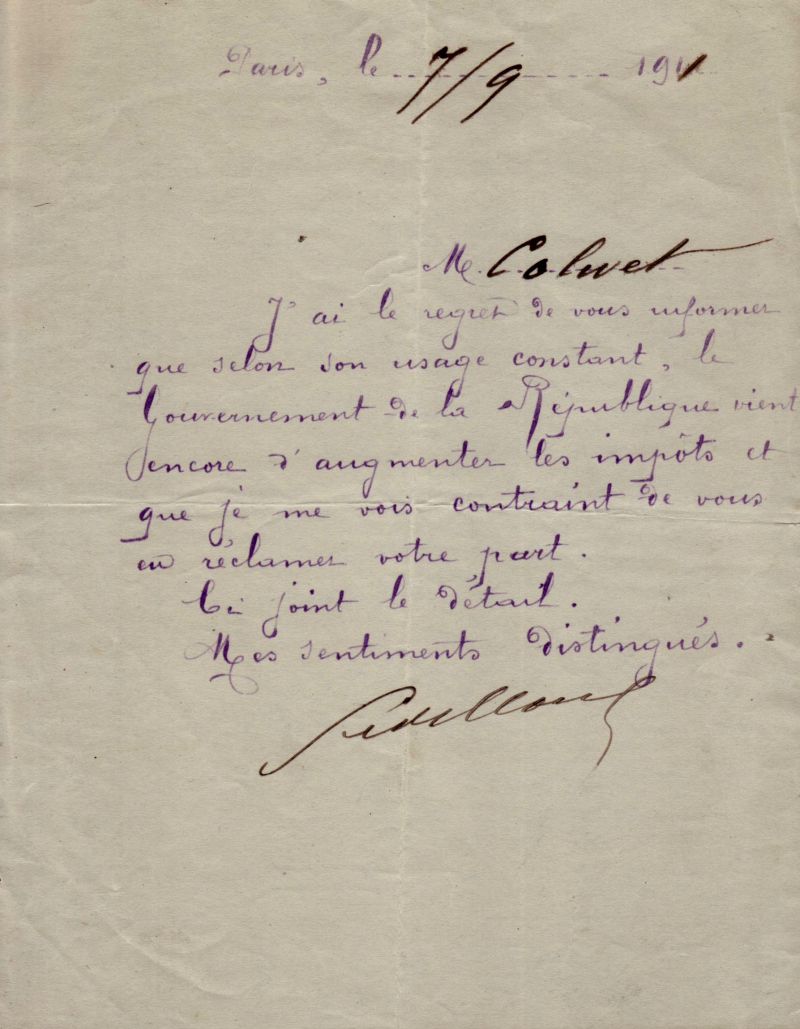 Paris, le 7/9 191
M. Coluet
J'ai le regret de vous informer
que selon son usage constant, le
Gouvernement de la République vient
encore d'augmenter les impôts et
que je me vois contraint de vous
en réclamer votre part.
Ci joint le détail.
Mes sentiments distingués.